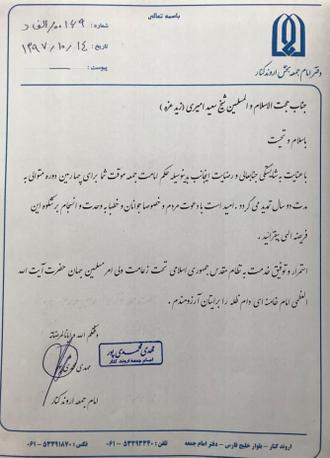 باسمه تعالی
شماره : ۱۶۹/م ر/الف د
تاریخ : ۱۳۹۷/۱۰/۱۴
پیوست :
دفتر امام جمعه بخش اروندکنار
جناب حجت الاسلام و المسلمین شیخ سعید امیری ( زید عزه )
باسلام و تحیت
با عنایت به شایستگی جنابعالی و رضایت اینجانب بدینوسیله حکم امامت جمعه موقت شما برای چهارمین دوره متوالی به
مدت دو سال تمدید می گردد . امید است با دعوت مردم و خصوصا جوانان و خطبا به وحدت و انجام پرشکوه این
فریضه الهی بیفزائید .
استمرار و توفیق خدمت به نظام مقدس جمهوری اسلامی تحت زعامت ولی امر مسلمین جهان حضرت آیت الله
العظمی امام خامنه ای دام ظله را برایتان آرزومندم .
وفقکم الله و ایانا لمرضاته
مهدی محمدی پور
امام جمعه اروند کنار
مهدی محمدی پور
امام جمعه اروند کنار
اروند کنار - بلوار خلیج فارس - دفتر امام جمعه
تلفن : ۵۳۳۹۳۳۴۰-۰۶۱
فکس : ۵۳۳۹۱۸۷۰-۰۶۱